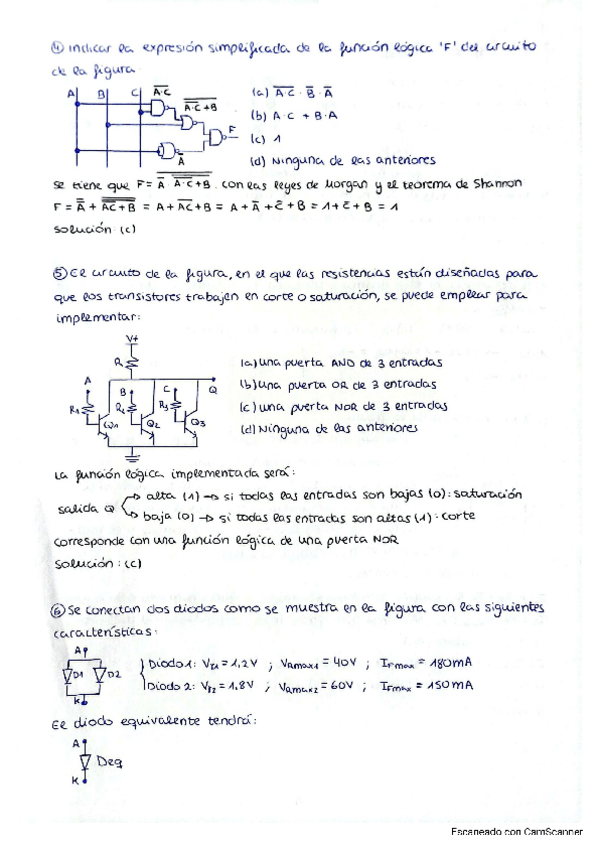 ④ Indicar la expresión simplificada de la función lógica 'F' del circuito
de la figura
A B C A·C
A·C+B
F
A
(a) A·C · B · A
(b) A·C + B·A
(c) 1
(d) Ninguna de las anteriores
se tiene que F = A · A·C+B . con las leyes de Morgan y el teorema de Shannon
F = A + AC+B = A + AC + B = A + A + C + B = 1 + C + B = 1
solución: (c)
⑤ El circuito de la figura, en el que las resistencias están diseñadas para
que los transistores trabajen en corte o saturación, se puede emplear para
implementar:
V+
R
A B C Q
R1 R2 R3
Q1 Q2 Q3
(a) una puerta AND de 3 entradas
(b) una puerta OR de 3 entradas
(c) una puerta NOR de 3 entradas
(d) Ninguna de las anteriores
La función lógica implementada será:
salida Q → alta (1) → si todas las entradas son bajas (0): saturación
→ baja (0) → si todas las entradas son altas (1): corte
corresponde con una función lógica de una puerta NOR
solución: (c)
⑥ Se conectan dos diodos como se muestra en la figura con las siguientes
características:
A
D1 D2
K
Diodo 1: Vγ1 = 1,2V ; VRmax1 = 40V ; IFmax = 180mA
Diodo 2: Vγ2 = 1,8V ; VRmax2 = 60V ; IFmax = 150mA
El diodo equivalente tendrá:
A
Deq
K
Escaneado con CamScanner